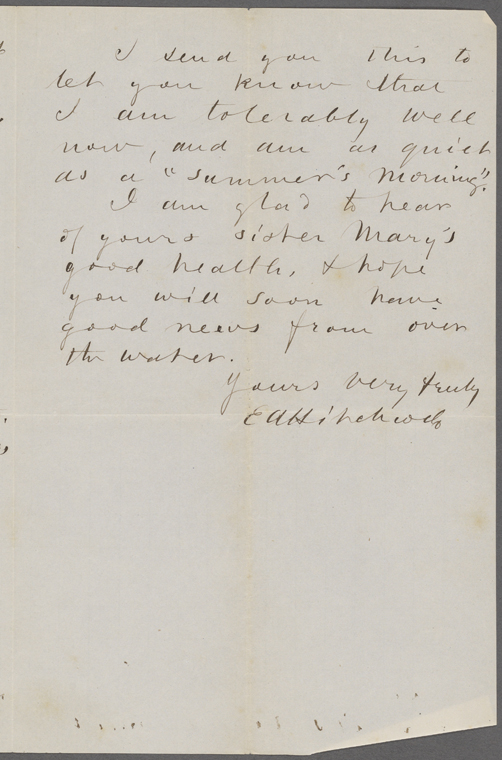 I send you this to
let you know that
I am tolerably well
now, and am as quiet
as a "summer's morning".
I am glad to hear
of yours sister Mary's
good health, & hope
you will soon have
good news from over
the water.
Yours very truly
E A Hitchcock